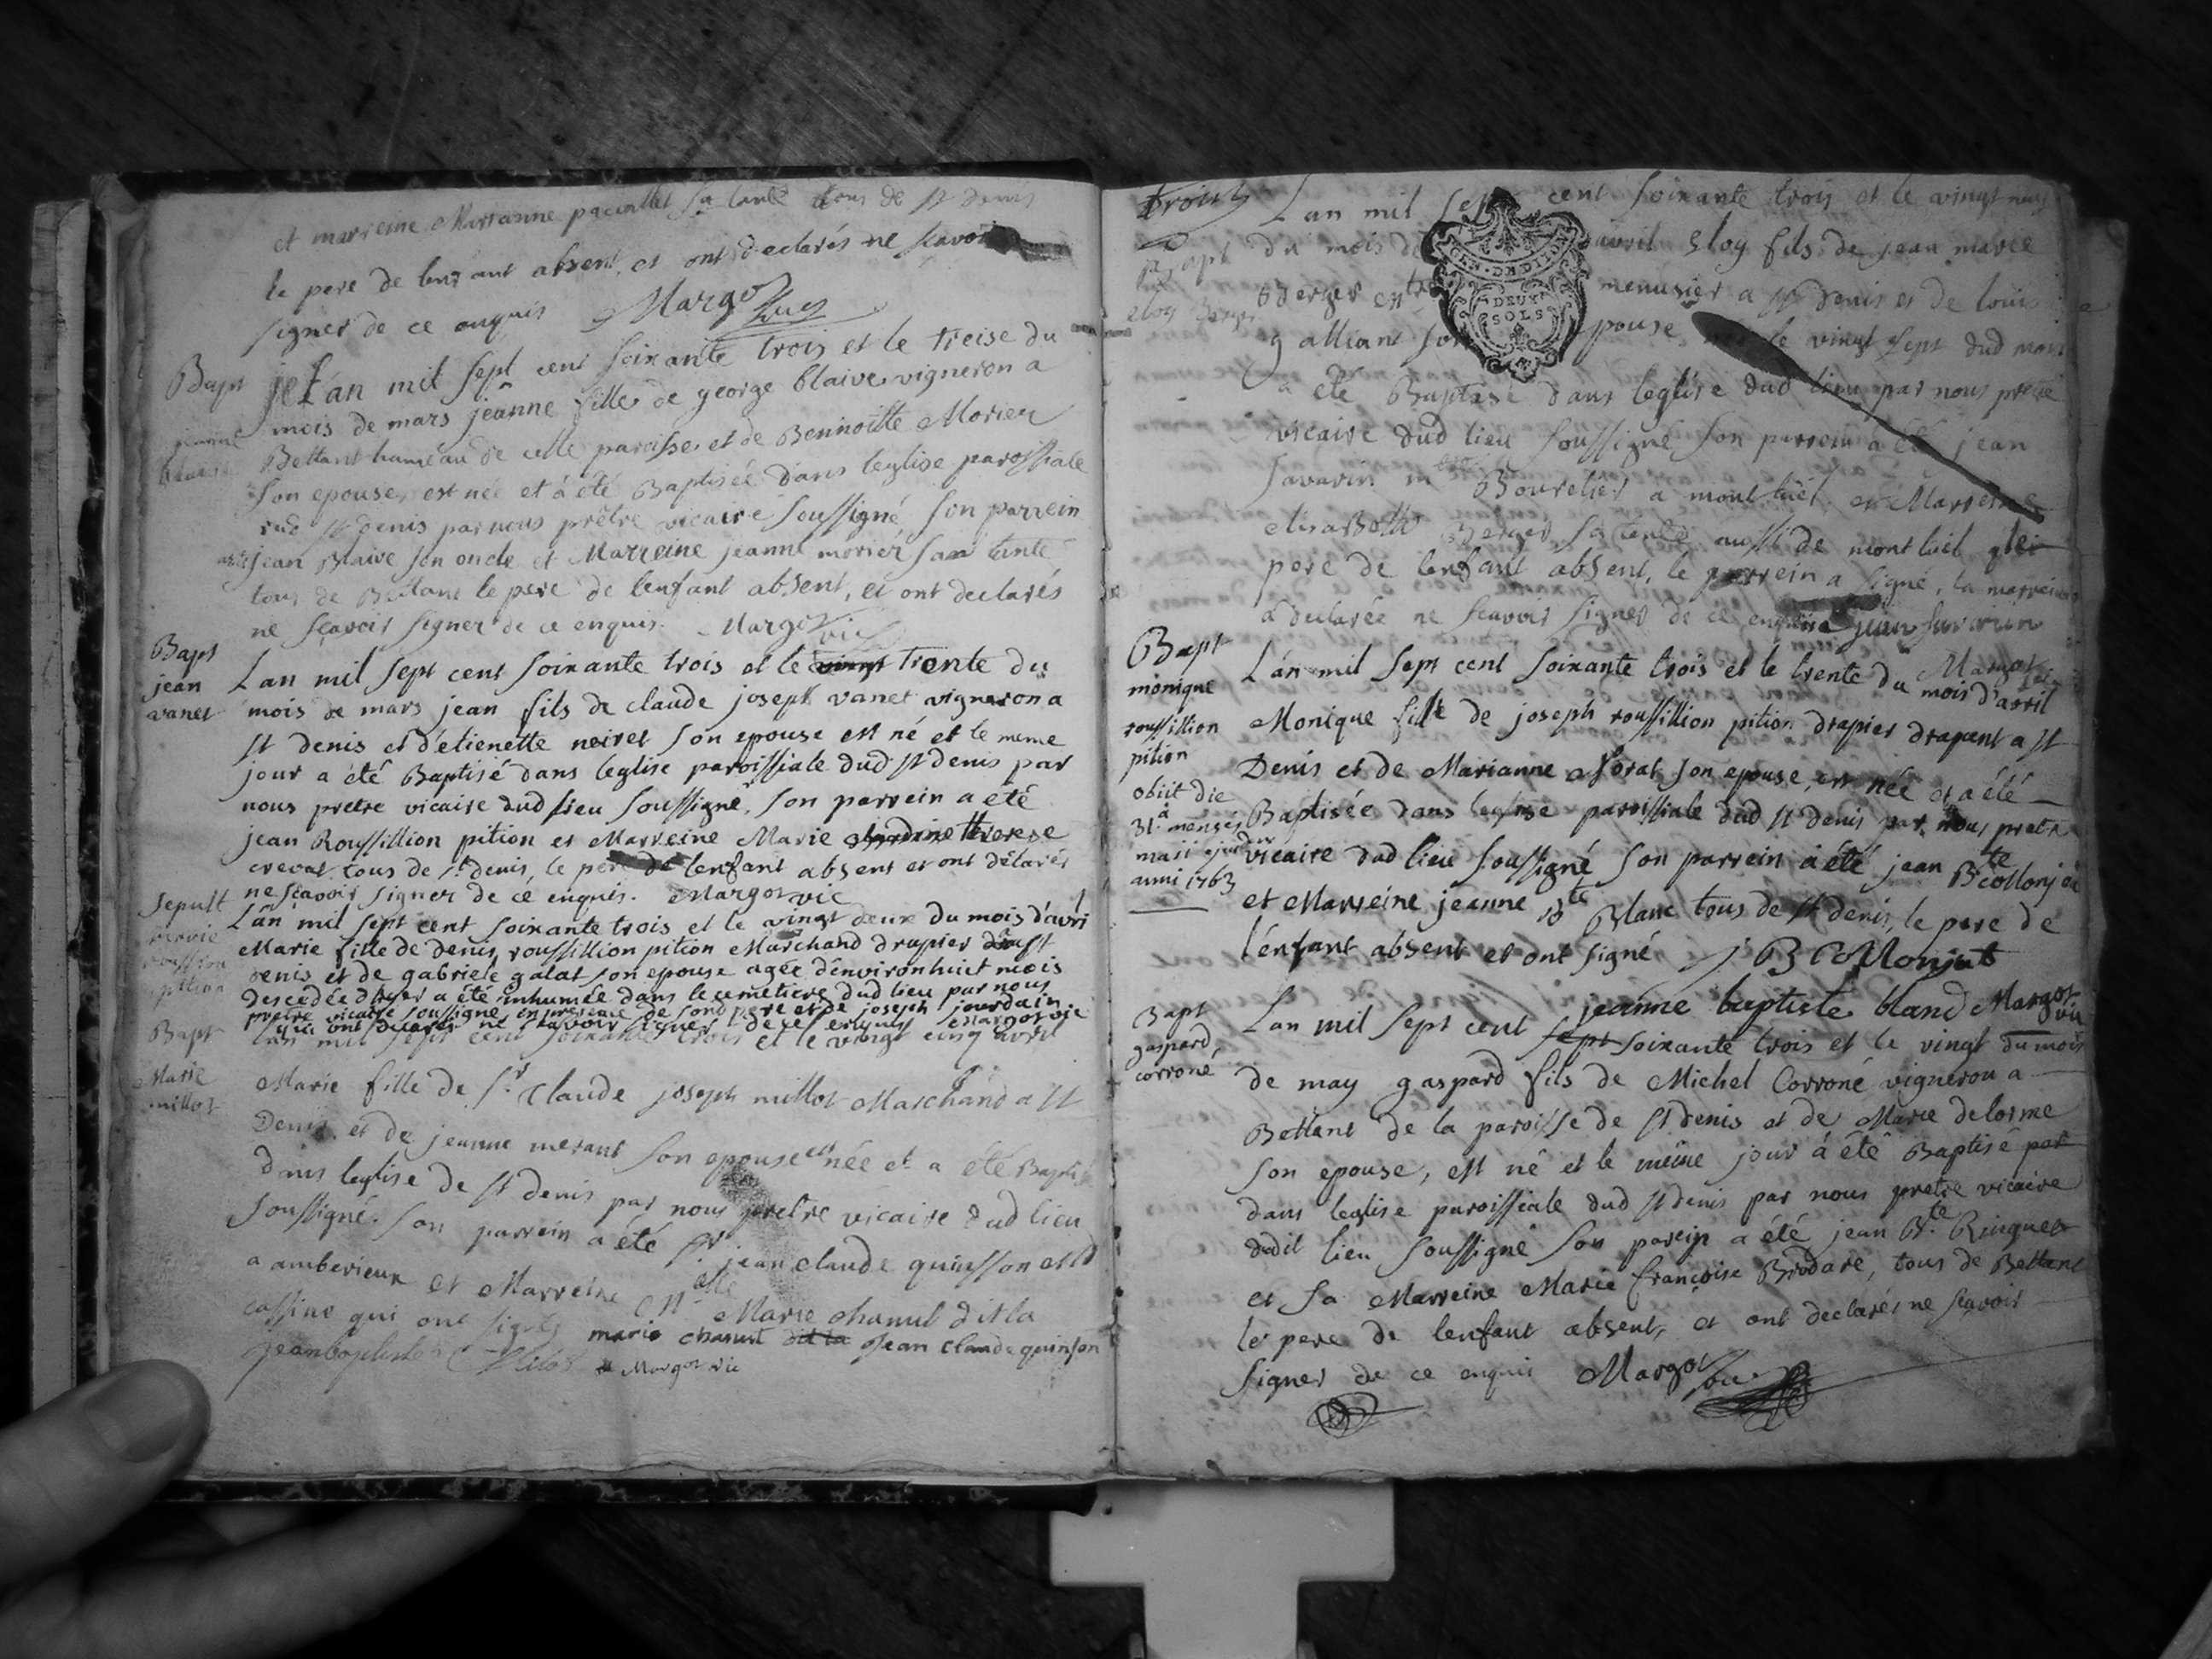 et marreine Marianne pacallet sa tante tous de st denis
le pere de lenfant absent, et ont declarés ne scavoir
signer de ce enquis Margot vic
Bapt
jeanne
blaive
je L'an mil sept cent soixante trois et le treise du
mois de mars jeanne fille de george blaive vigneron a
Bettant hameau de cette paroisse et de Bennoitte Morier
son epouse, est née et à été Baptisée dans leglise paroissiale
dud st denis par nous prêtre vicaire soussigné, son parrein
jean Blaive son oncle et Marreine jeanne morier sa tante
tous de Bettant le pere de lenfant absent, et ont declarés
ne sçavoir signer de ce enquis. Margot vic
Bapt
jean
vanet
L'an mil sept cent soixante trois et le vingt trente du
mois de mars jean fils de claude joseph vanet vigneron a
st denis et d'etienette neiret son epouse est né et le meme
jour a été Baptisé dans leglise paroissiale dud st denis par
nous pretre vicaire dud lieu soussigné, son parrein a eté
jean Roussillion pition et Marreine Marie claudine therese
crevat tous de st denis, le pere de lenfant absent et ont délarés
ne sçavoir signer de cé enquis. Margot vic
Sepult
marie
roussillion
pition
L'an mil sept cent soixante trois et le vingt deux du mois d'avril
Marie fille de denis roussillion pition Marchand drapier dud st
denis et de gabriele galat son epouse agée d'environ huit mois
descedée d'hyer a été inhumée dans le cemetiere dud lieu par nous
pretre vicaire soussigné en presence de sond pere et de joseph jourdain
qui ont declarés ne scavoir signer de ce enquis Margot vic
Bapt
Marie
millot
L'an mil sept cent soixante trois et le vingt cinq avril
Marie fille de sr Claude joseph millot Marchand a st
Denis et de jeanne merant son epouse est née et a été Baptisée
dans leglise de st denis par nous pretre vicaire dud lieu
soussigné. son parrein a été sr jean claude quinson
a amberieux et Marreine Marie chanut dit la
cassine qui ont signés marie chanut dit la jean claude quinson
jean baptiste Millot Margot vic
troisz
Bapt
eloy Berger
L'an mil sept cent soixante trois et le vingt neuf
du mois d avril Eloy fils de jean marie
Berger menusier a st denis et de louise
galliant son epouse né le vingt sept dud mois
a été Baptisé dans leglise dud lieu par nous pretre
vicaire dud lieu soussigné son parrein a été jean
savarin Bourelier a mont luël et Marreine
elisabeth Berger sa tante aussi de mont luël le
pere de lenfant absent, le parrein a signé, la marreine
a declarée ne scavoir signer de ce enquise jean savarin
Margot vic
Bapt
monique
roussillion
pition
obiit die
31.a mensis
maii ejusdem
anni 1763
L'an mil sept cent soixante trois et le trente du mois d'avril
Monique fille de joseph roussillion pition drapier drapant a st
Denis et de Marianne Morat son epouse, est née et a été
Baptisée dans leglise paroissiale dud st denis par nous pretre
vicaire dud lieu soussigné son parrein à été jean Bte Collonjat
et Marreine jeanne Bte Blanc tous de st denis, le pere de
l'enfant absent et ont signé J B Collonjat
jeanne baptiste bland Margot vic
Bapt
gaspard
corroné
L'an mil sept cent sept soixante trois et le vingt du mois
de may gaspard fils de Michel Corroné vigneron a
Bettant de la paroisse de st denis et de Marie delorme
son epouse, est né et le même jour à été Baptisé par
dans leglise paroissiale dud st denis par nous pretre vicaire
dudit lieu soussigné son parein a été jean Bte Ringuet
et sa Marreine Marie françoise Brodare, tous de Bettant
le pere de lenfant absent, et ont declarés ne sçavoir
signer de ce enquis Margot vic.
GEN. DE DIJON
DEUX
SOLS